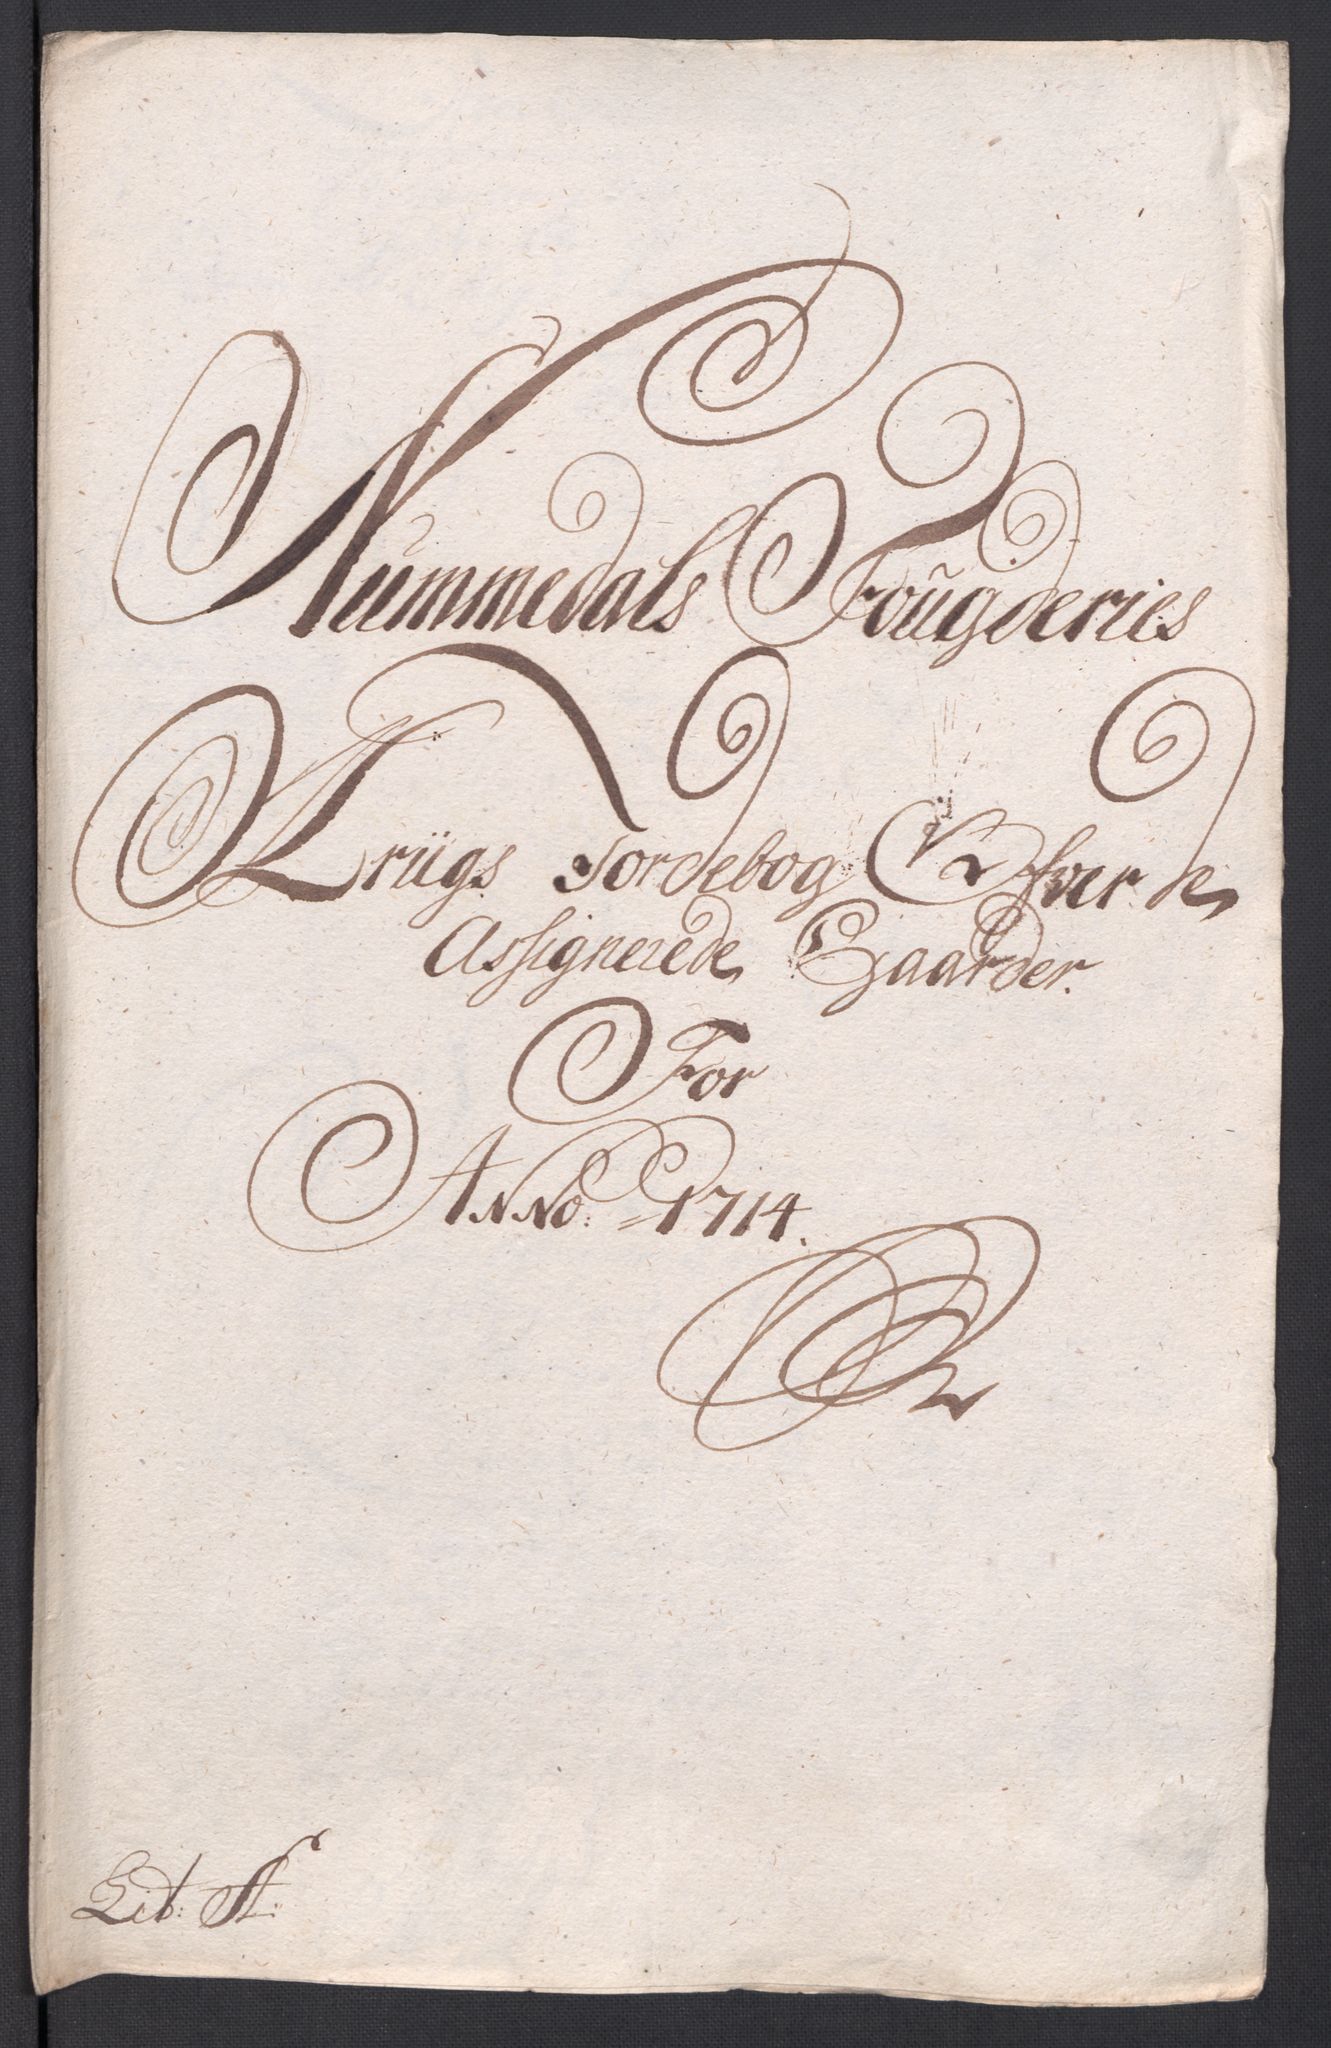 Nummedals Fougderies
Krügs Jordebog Ofver de
Assignerede Gaarder.
For
Anno: 1714.
Lit: A: